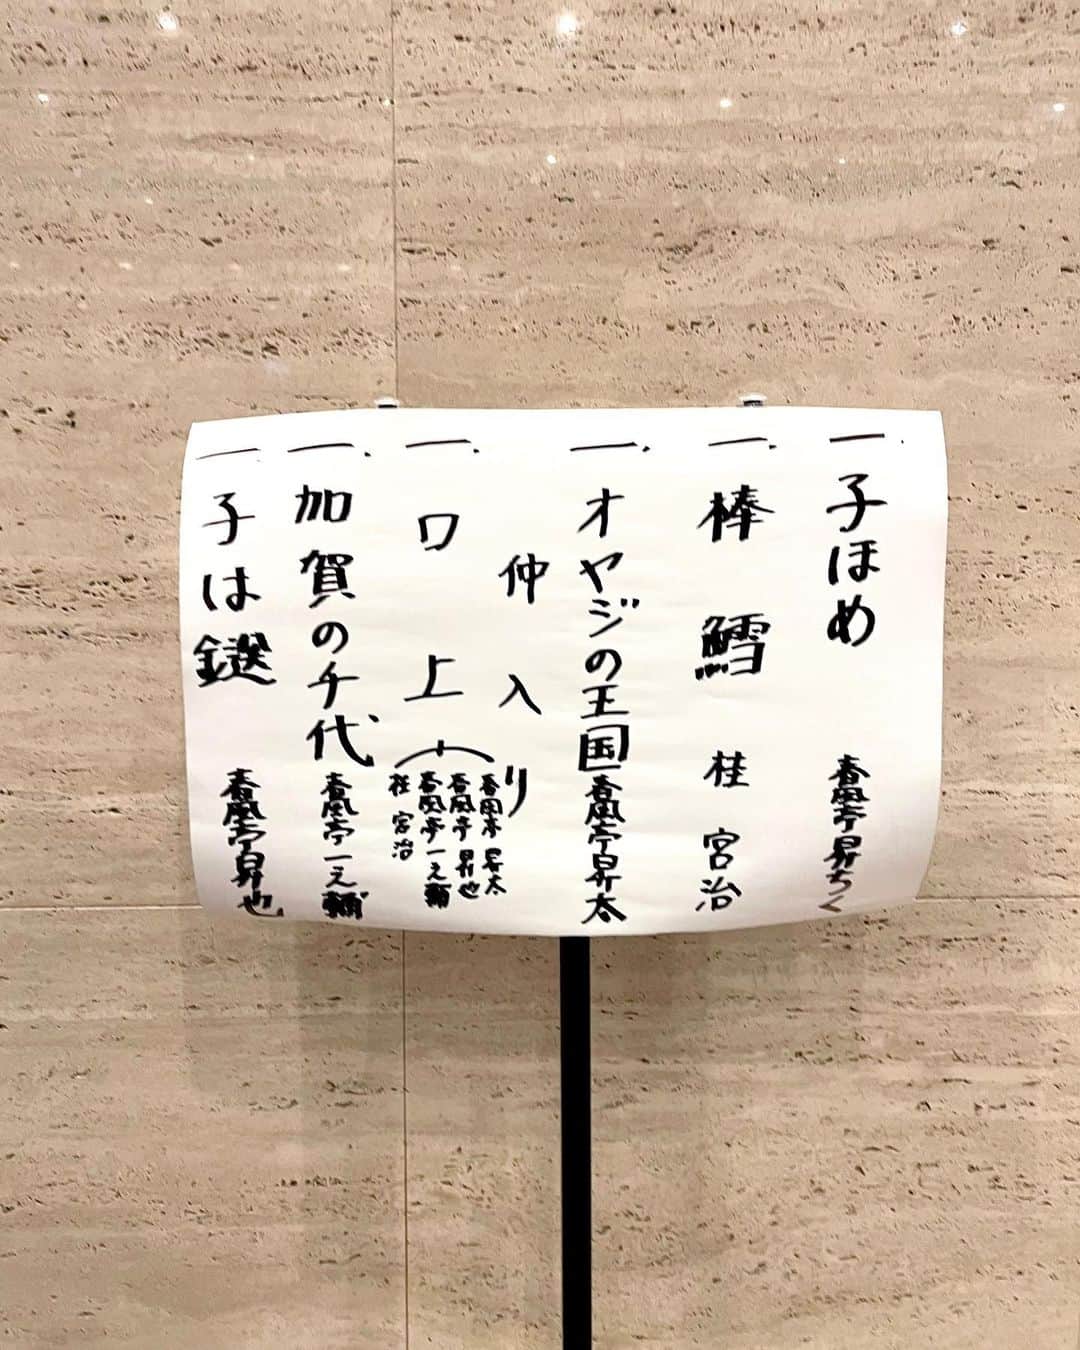 一、子ほめ 春風亭昇ちく
一、棒鱈 桂宮治
一、オヤジの王国 春風亭昇太
仲入り
一、口上
春風亭昇太
春風亭昇也
春風亭一之輔
桂宮治
一、加賀の千代 春風亭一之輔
一、子は鎹 春風亭昇也